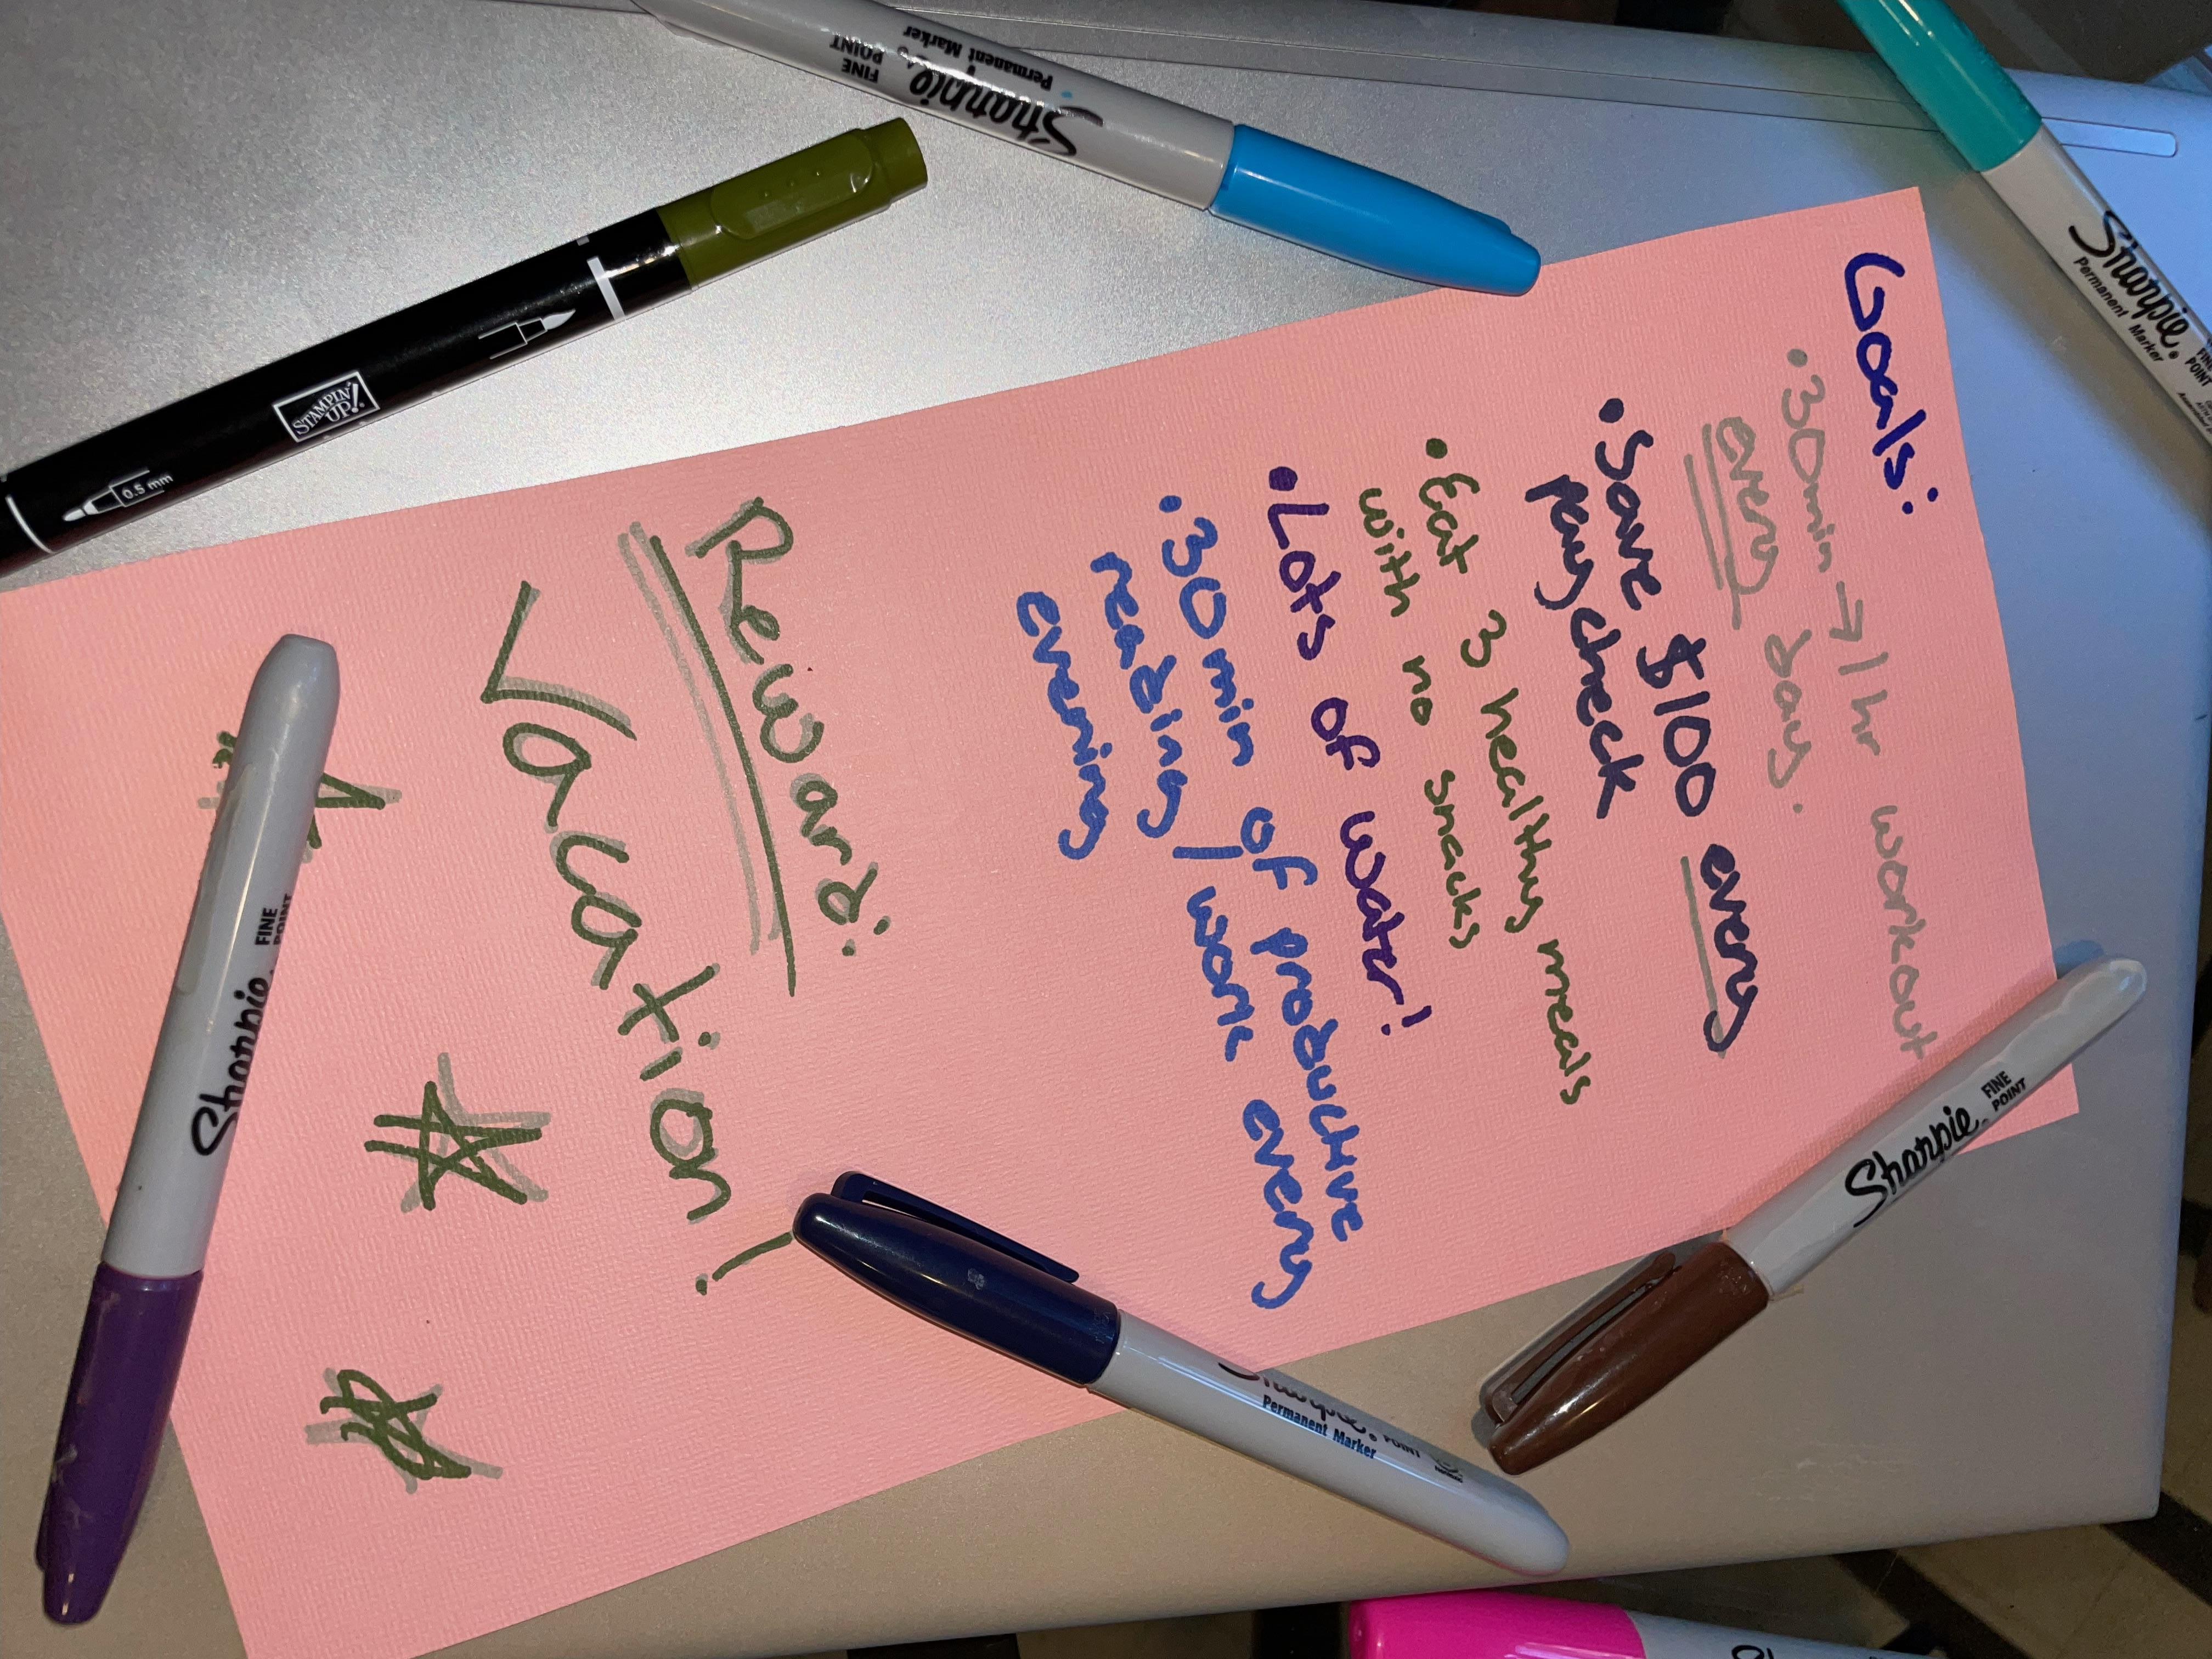 Goals:
• 30min → 1hr workout
every day.
• Save $100 every
paycheck
• Eat 3 healthy meals
with no snacks
• Lots of water!
• 30 min of productive
reading / work every
evening
Reward:
Vacation!
Sharpie
Permanent Marker
FINE
POINT
STAMPIN'
UP!
0.5 mm
Sharpie.
Permanent Marker
FINE
POINT
Sharpie.
FINE
POINT
Sharpie.
Permanent Marker
POINT
Sharpie
FINE
POINT